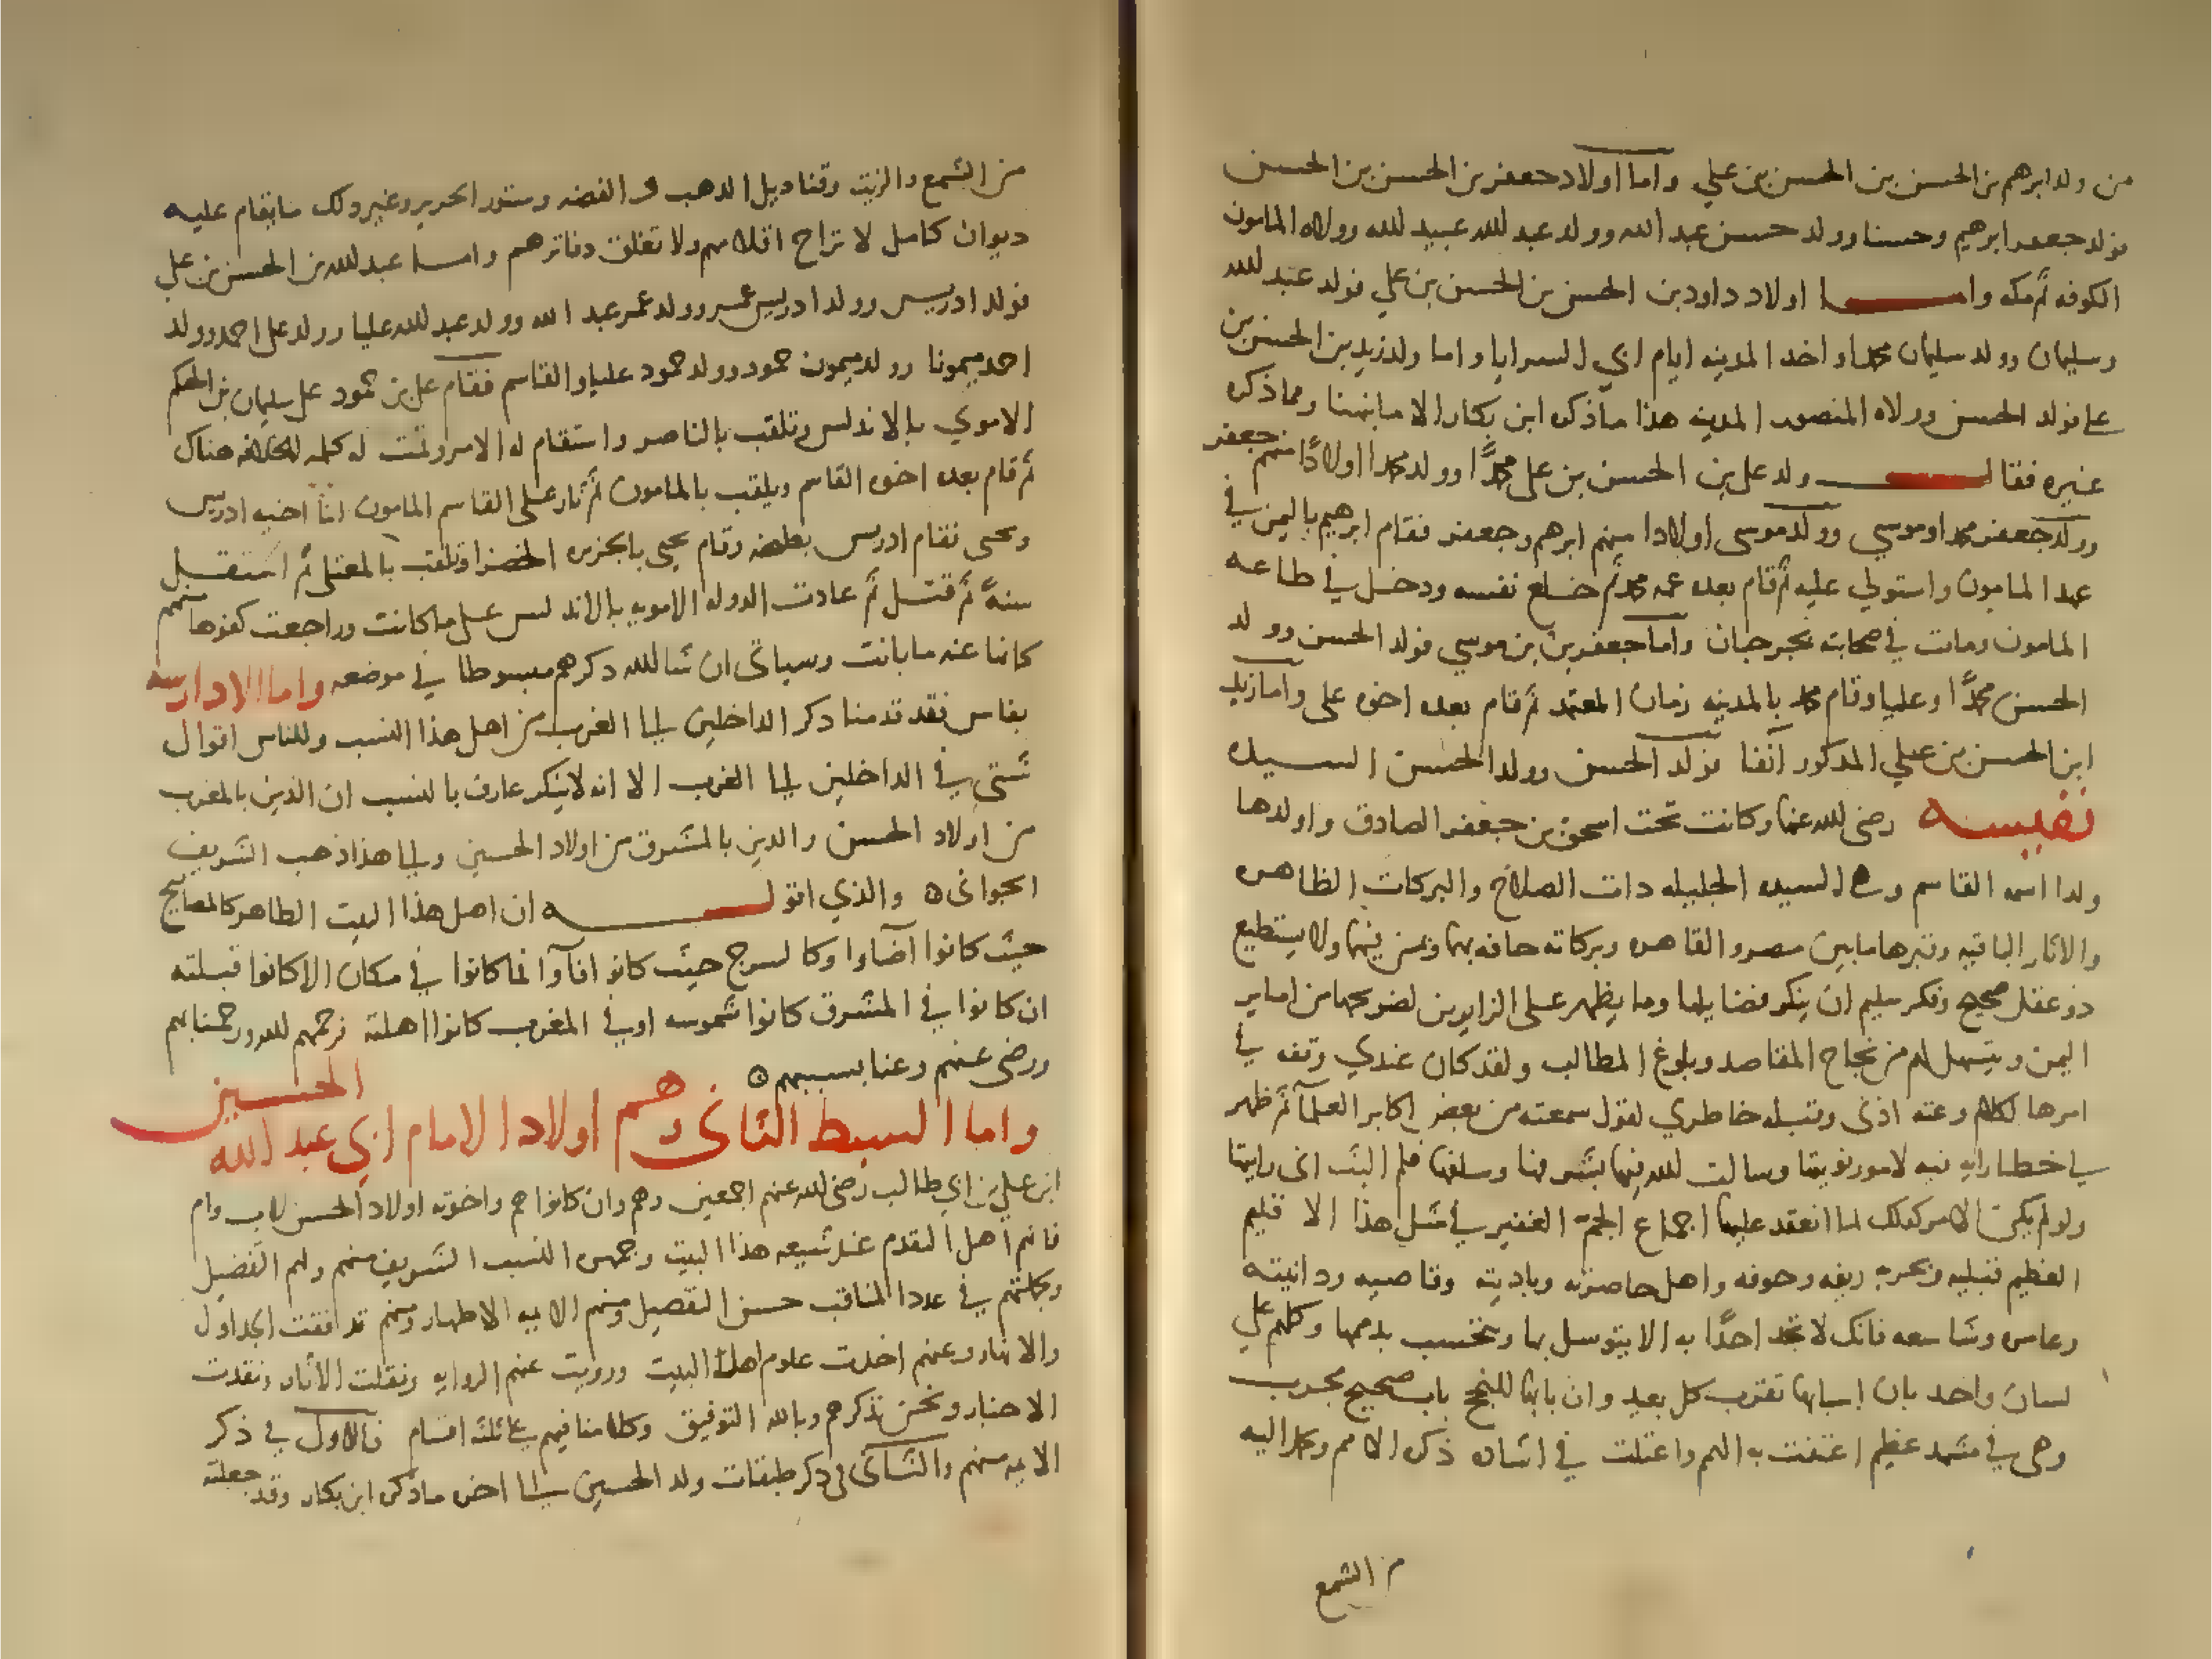 من ولد ابرهيم بن الحسن بن الحسن بن علي واما اولاد جعفر بن الحسن بن الحسن
فولد جعفر ابرهيم وحسنا وولد حسن عبد الله وولد عبد الله عبيد الله وولاه المامون
الكوفه ثم مكه واما اولاد داود بن الحسن بن الحسن بن علي فولد عبد الله
وسليمان وولد سليمان محمدا واخد المدينه ايام ابي السرايا واما ولد زيد بن الحسن بن
علي فولد الحسن وولاه المنصور المدينه هذا ما ذكره ابن بكار الا ما بنهنا ومما ذكره
غيره فقال ولد علي بن الحسن بن علي محمدًا وولد محمدا اولادًا منهم جعفر
وولد جعفر محمدا وموسي وولد موسى اولادا منهم ابرهيم وجعفر فقام ابرهيم باليمن في
عهد المامون واستولي عليه ثم قام بعده عمه محمد ثم خلع نفسه ودخل في طاعه
المامون ومات في صحابته بجرجان واما جعفر بن موسي فولد الحسن وولد
الحسن محمدًا وعليا وقام محمد بالمدينه زمان المعتمد ثم قام بعده اخوه علي واما زيد
ابن الحسن بن علي المدكور آنفا فولد الحسن وولد الحسن السيده
نفيسه رضى الله عنها وكانت تحت اسحق بن جعفر الصادق واولدها
ولدا اسمه القاسم وهي السيده الجليله دات الصلاح والبركات الظاهره
والاثار الباقيه وقبرها مابين مصر والقاهره وبركاته حافه بهما وبمن فيهما ولا يستطيع
دو عقل صحيح وفكر سليم ان ينكر فضايلها وما يظهر على الزايرين لضريحها من اماير
اليمن ويتسهل لهم من نجاح المقاصد وبلوغ المطالب ولقد كان عندي وقف في
امرها لكلام وعته اذنى وقبله خاطري لقول سمعته من بعض اكابر العلمآ ثم ظهر
لي خطا رايه فيه لامور
ولو لم يكن الامر كدلك لما انعقد عليها اجماع الجم الغفير في مثل هذا الاقليم
العظيم قبليه وبحريه ريفه وحوفه واهل حاضرته وباديته وقاصيه ودانيته
وعامره وشاسعه فانك لا تجد احدًا به الا يتوسل بها ويتحسب بدمها وكلهم علي
لسان واحد بان اسبابها تقرب كل بعيد وان بابها للنجح باب صحيح مجرب
وهي في مشهد عظيم اعتنت به الهمم واعتلت في اشاده ذكره الامم وحمل اليه
من الشمع
من الشمع والزيت وقناديل الدهب والفضه وستور الحرير وغير دلك ما يقام عليه
ديوان كامل لا تراح اقلامهم ولا تغلق دفاترهم واما عبد الله بن الحسن بن علي
فولد ادريس وولد ادريس عمر وولد عمر عبد الله وولد عبد الله عليا وولد علي احمد وولد
احمد ميمونا وولد ميمون حمود وولد حمود عليا والقاسم فقام علي بن حمود على سليمان بن الحكم
الاموي بالاندلس وتلقب بالناصر واستقام له الامر وتمت له كلمه الخلافه هناك
ثم قام بعده اخوه القاسم ويلقب بالمامون ثم ثار على القاسم المامون ابنا اخيه ادريس
ويحيى فقام ادريس وقام يحيى بالجزيره الخضرا وتلقب بالمعتلي ثم استقبل
سنةً ثم قتل ثم عادت الدوله الامويه بالاندلس على ماكانت وراجعت
كانا عنه مابانت وسياتى ان شا الله دكرهم مبسوطا في موضعه واما الادارسه
بفاس فقد قدمنا دكر الداخلين الي الغرب من اهل هذا النسب وللناس اقوال
شتي في الداخلين الي الغرب الا انه لا ينكر عارف بالنسب ان الذين بالمغرب
من اولاد الحسن والدين بالمشرق من اولاد الحسين والي هذا ذهب الشريف
الجوانى ۞ والذي اقوله ان اهل هذا البيت الطاهر كالمصابيح
حيث كانوا اضاوا وكالسرج حيث كانوا انآوا فما كانوا في مكان الا كانوا قبلته
ان كانوا في المشرق كانوا شموسه او في المغرب كانوا اهلته فرحمهم الله ورحمنا بهم
ورضى عنهم وعنا بسببهم ۞
واما السبط الثانى وهم اولاد الامام ابي عبد الله الحسين
ابن علي بن ابي طالب رضى الله عنهم اجمعين وهم وان كانوا هم واخوته اولاد الحسن لاب وام
فانهم اهل التقدم عند شيعه هذا البيت وجمهره النسب الشريف منهم ولهم التفضيل
في عدد المناقب حسن التفصيل ومنهم الايمه الاطهار ومنهم تدافقت الجداول
والانهار وعنهم اخدت علوم اهل البيت ورويت عنهم الروايه ونقلت الآثار ونقدت
الاخبار ونحن نذكرهم وبالله التوفيق وكلامنا فيهم على ثلثه اقسام فالاول في ذكر
الايمه منهم والثانى في دكر طبقات ولد الحسين الي اخر ما ذكره ابن بكار وقد جعلته